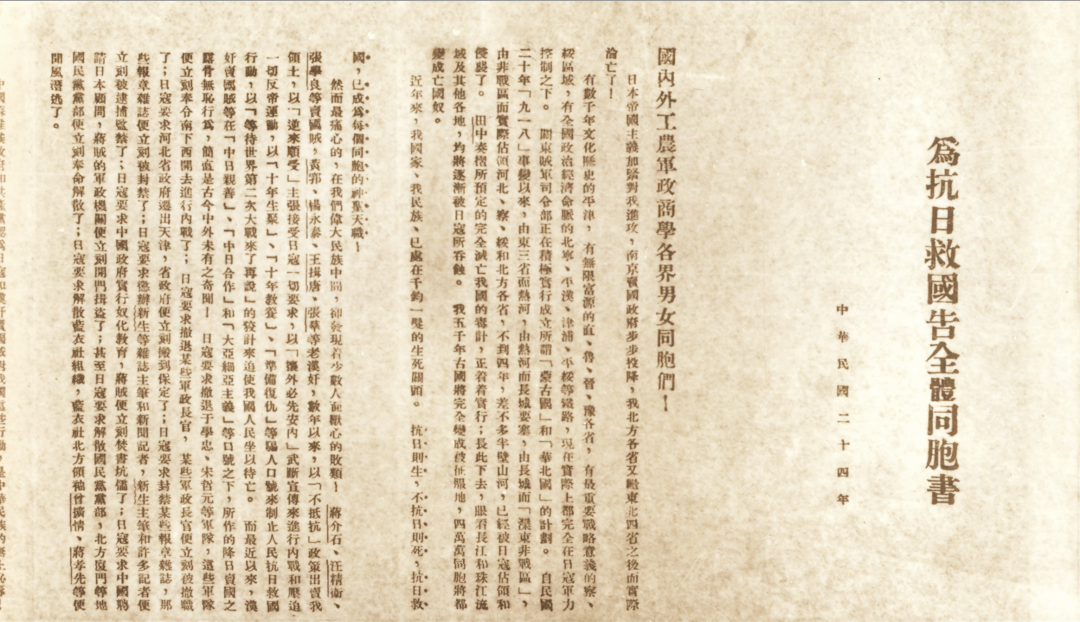 爲抗日救國告全體同胞書
中華民國二十四年
國內外工農軍政商學各界男女同胞們！
日本帝國主義加緊對我進攻，南京賣國政府步步投降，我北方各省又繼東北四省之後而實際
淪亡了！
有數千年文化歷史的平津，有無限富源的直、魯、晉、豫各省，有最重要戰略意義的察、
綏區域，有全國政治經濟命脈的北寧、平漢、津浦、平綏等鐵路，現在實際上都完全在日寇軍力
控制之下。關東賊軍司令部正在積極實行成立所謂「蒙古國」和「華北國」的計劃。自民國
二十年「九一八」事變以來，由東三省而熱河，由熱河而長城要塞，由長城而「灤東非戰區」，
由非戰區而實際佔領河北、察、綏和北方各省，不到四年，差不多半壁山河，已經被日寇佔領和
侵襲了。田中奏摺所預定的完全滅亡我國的毒計，正着着實行；長此下去，眼看長江和珠江流
域及其他各地，均將逐漸被日寇所吞蝕。我五千年古國將完全變成被征服地，四萬萬同胞將都
變成亡國奴。
近年來，我國家、我民族、已處在千鈞一髮的生死關頭。抗日則生，不抗日則死，抗日救
國，已成爲每個同胞的神聖天職！
然而最痛心的，在我們偉大民族中間，却發現着少數人面獸心的敗類！蔣介石、汪精衛、
張學良等賣國賊，黃郛、楊永泰、王揖唐、張羣等老漢奸，數年以來，以「不抵抗」政策出賣我
領土，以「逆來順受」主張接受日寇一切要求，以「攘外必先安內」武斷宣傳來進行內戰和壓迫
一切反帝運動，以「十年生聚」、「十年教養」、「準備復仇」等騙人口號來制止人民抗日救國
行動，以「等待世界第二次大戰來了再說」的狡計來迫使我國人民坐以待亡。而最近以來，漢
奸賣國賊等在「中日親善」、「中日合作」和「大亞細亞主義」等口號之下，所作的降日賣國之
露骨無恥行爲，簡直是古今中外未有之奇聞！日寇要求撤退于學忠、宋哲元等軍隊，這些軍隊
便立刻奉令南下西開去進行內戰了；日寇要求撤退某些軍政長官，某些軍政長官便立刻被撤職
了；日寇要求河北省政府遷出天津，省政府便立刻搬到保定了；日寇要求封禁某些報章雜誌，那
些報章雜誌便立刻被封禁了；日寇要求懲辦新生等雜誌主筆和新聞記者，新生主筆和許多記者便
立刻被逮捕監禁了；日寇要求中國政府實行奴化教育，蔣賊便立刻焚書坑儒了；日寇要求中國聘
請日本顧問，蔣賊的軍政機關便立刻開門揖盜了；甚至日寇要求解散國民黨黨部，北方廈門等地
國民黨黨部便立刻奉命解散了；日寇要求解散藍衣社組織，藍衣社北方領袖曾擴情、蔣孝先等便
聞風潛逃了。